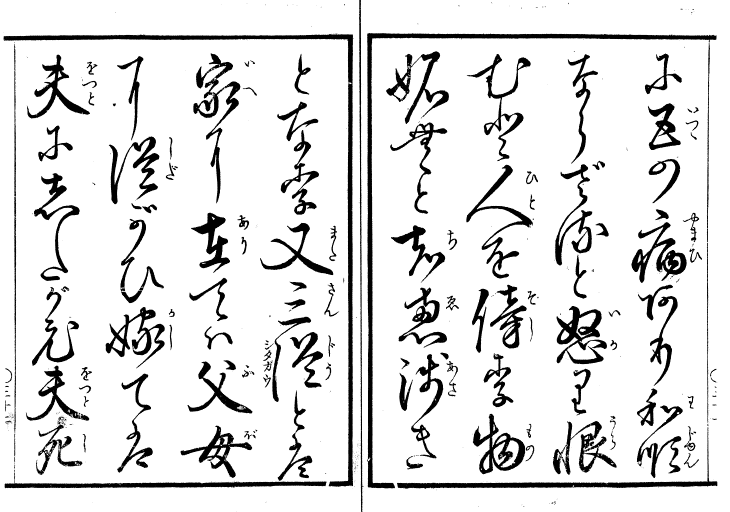 に五の病あり和順
ならざると怒り恨
むと人を謗り物
妬むと知恵浅き
となり又三従とは
家に在ては父母
に従がひ嫁ては
夫にしたがひ夫死